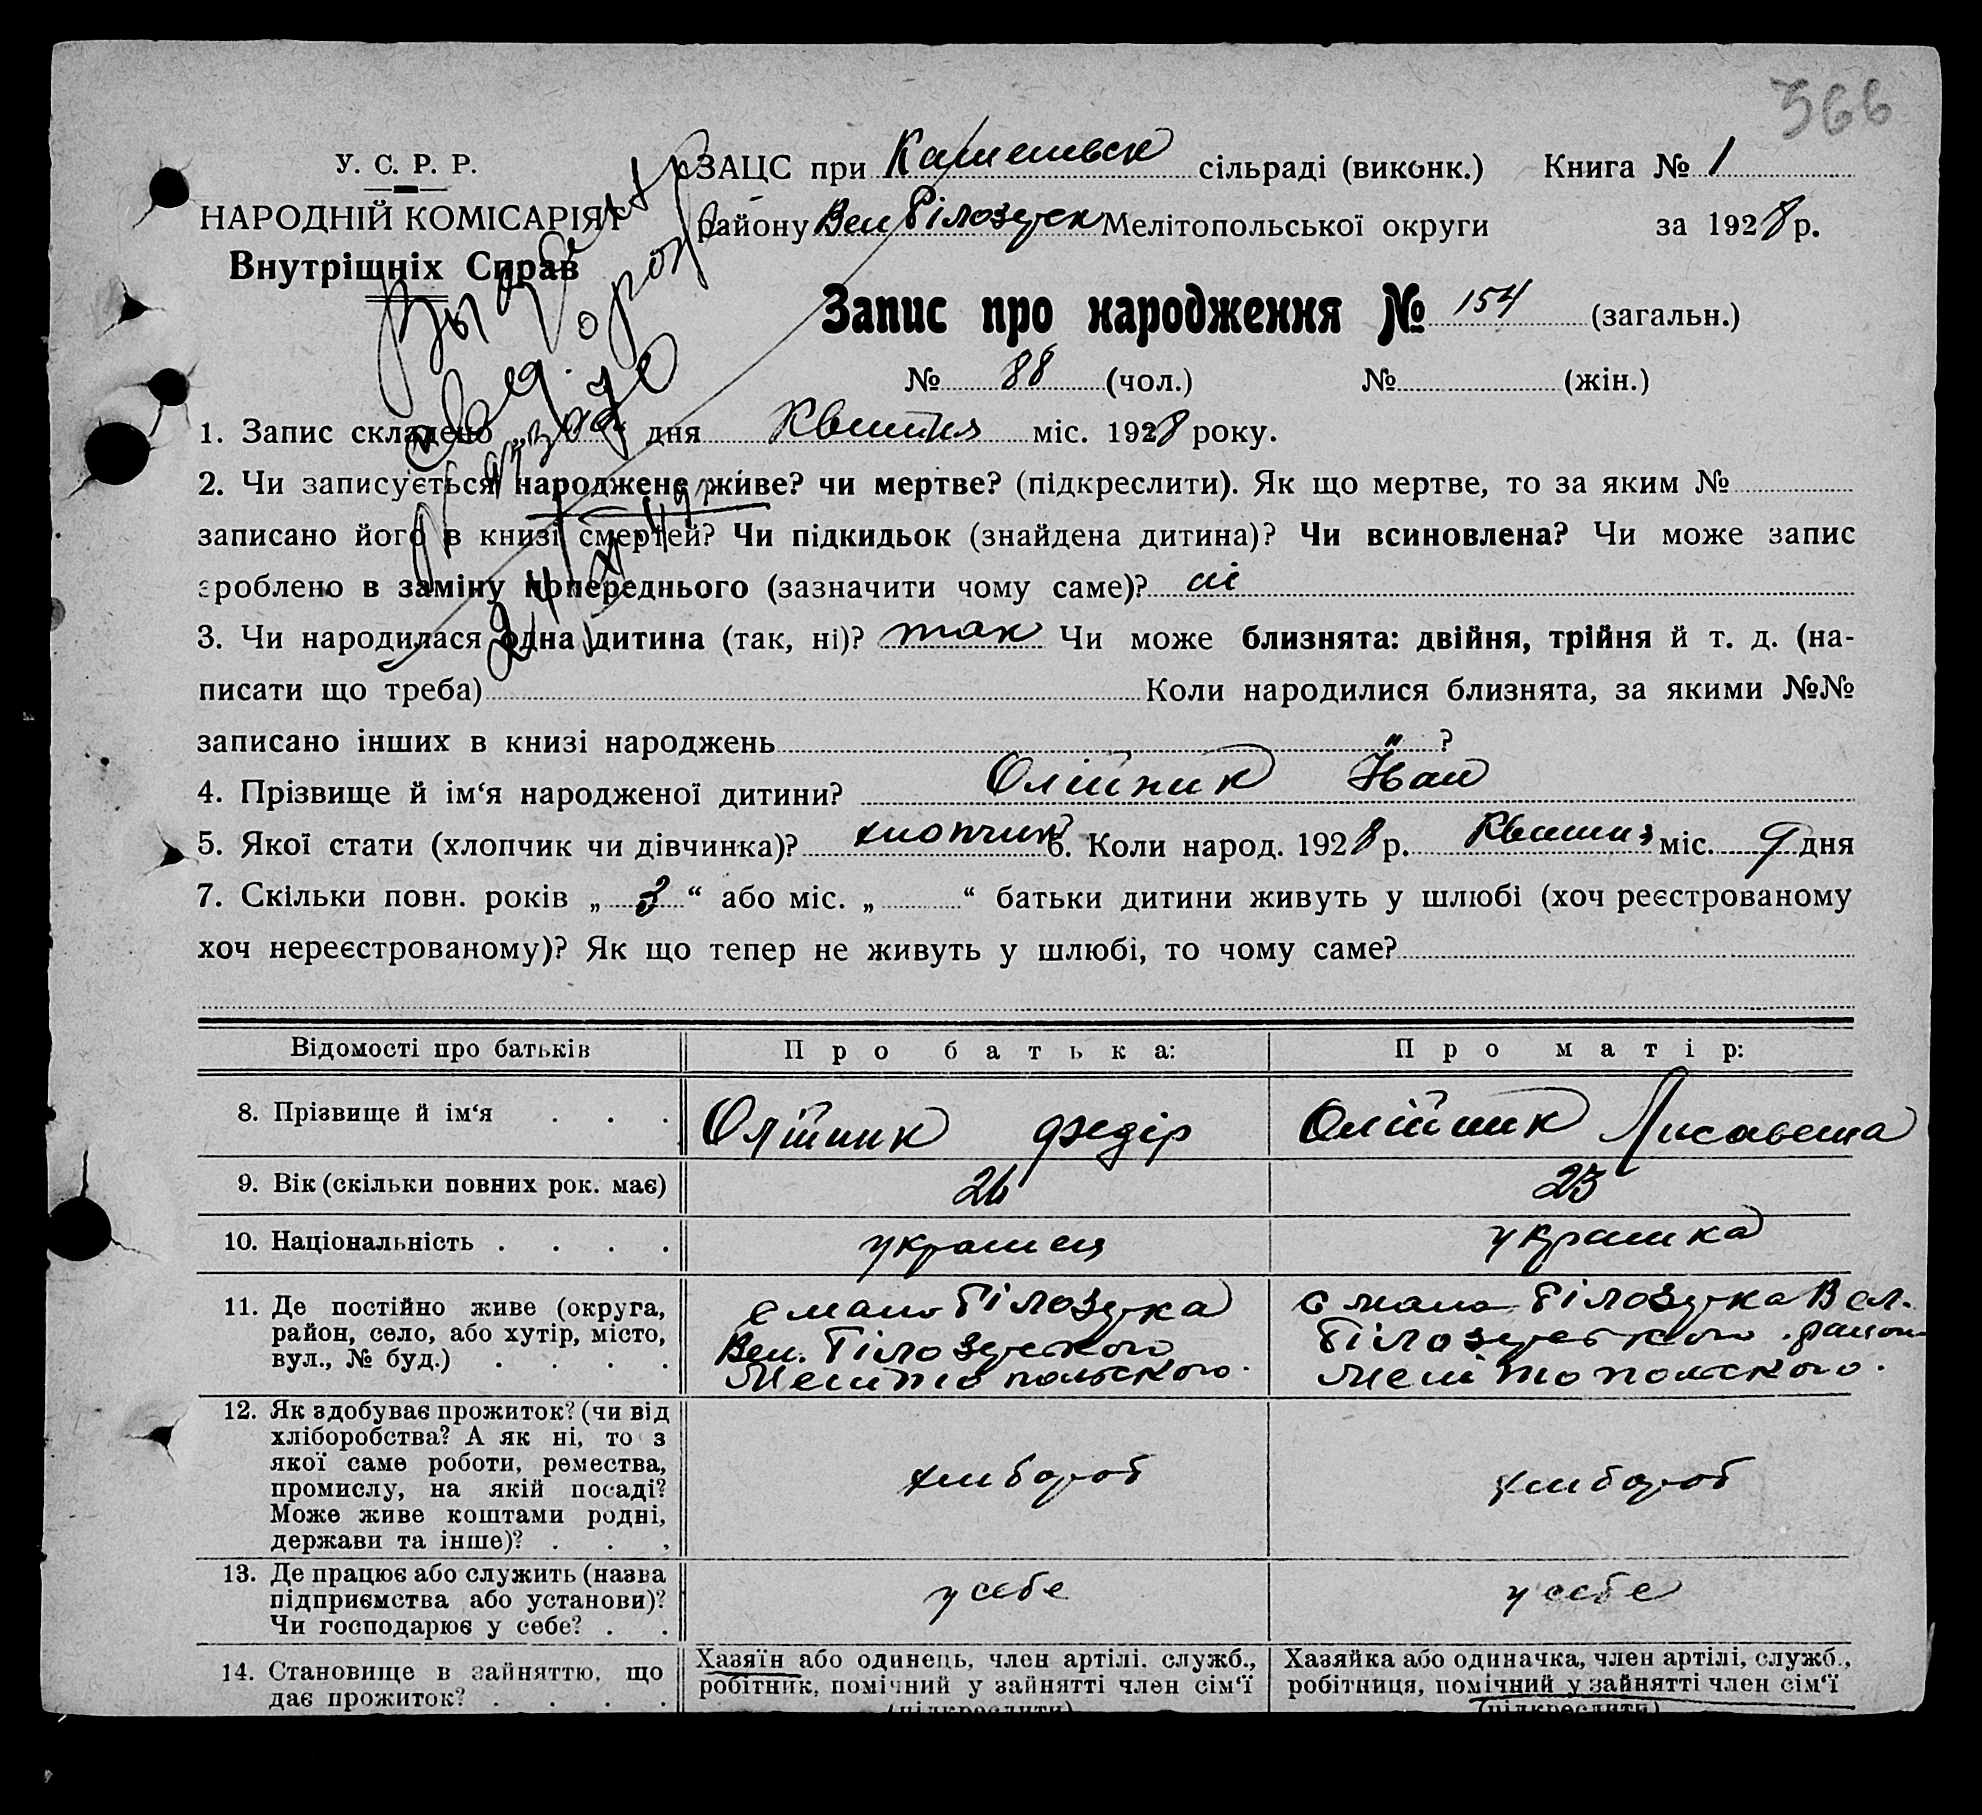 366
У. С. Р. Р.
НАРОДНІЙ КОМІСАРІЯТ
Внутрішніх Справ
ЗАЦС при сільраді (виконк.) Книга № 1
району Вел Білозерск Мелітопольської округи за 1928 р.
Запис про народження № 154 (загальн.)
№ 88 (чол.) № (жін.)
1. Запис складено „ “ дня Квітня міс. 1928 року.
2. Чи записується народжене живе? чи мертве? (підкреслити). Як що мертве, то за яким №
записано його в книзі смертей? Чи підкидьок (знайдена дитина)? Чи всиновлена? Чи може запис
зроблено в заміну попереднього (зазначити чому саме)? ні
3. Чи народилася одна дитина (так, ні)? так Чи може близнята: двійня, трійня й т. д. (на-
писати що треба) Коли народилися близнята, за якими №№
записано інших в книзі народжень „ ?
4. Прізвище й ім‘я народженої дитини? Олійник Іван
5. Якої стати (хлопчик чи дівчинка)? хлопчик 6. Коли народ. 1928 р. Квітня міс. 9 дня
7. Скільки повн. років „ 3 “ або міс. „ “ батьки дитини живуть у шлюбі (хоч реєстрованому
хоч нереєстрованому)? Як що тепер не живуть у шлюбі, то чому саме?
Відомості про батьків Про батька: Про матір:
8. Прізвище й ім‘я . . . Олійник Федір Олійник Лисавета
9. Вік (скільки повних рок. має) 26 25
10. Національність . . . . украинец украинка
11. Де постійно живе (округа,
район, село, або хутір, місто,
вул., № буд.) . . . .
с мала Білозерка
Вел. Білозерского
Мелітопольского.
с мала Білозерка Вел.
Білозерского район
Мелітопольского.
12. Як здобуває прожиток? (чи від
хліборобства? А як ні, то з
якої саме роботи, ремества,
промислу, на якій посаді?
Може живе коштами родні,
держави та інше)? . . .
хлибороб хлибороб
13. Де працює або служить (назва
підприємства або установи)?
Чи господарює у себе? . .
у себе у себе
14. Становище в зайняттю, що
дає прожиток? . . . .
Хазяїн або одинець, член артілі, служб.,
робітник, помічний у зайнятті член сім‘ї
(підкреслити)
Хазяйка або одиначка, член артілі, служб.,
робітниця, помічний у зайнятті член сім‘ї
(підкреслити)